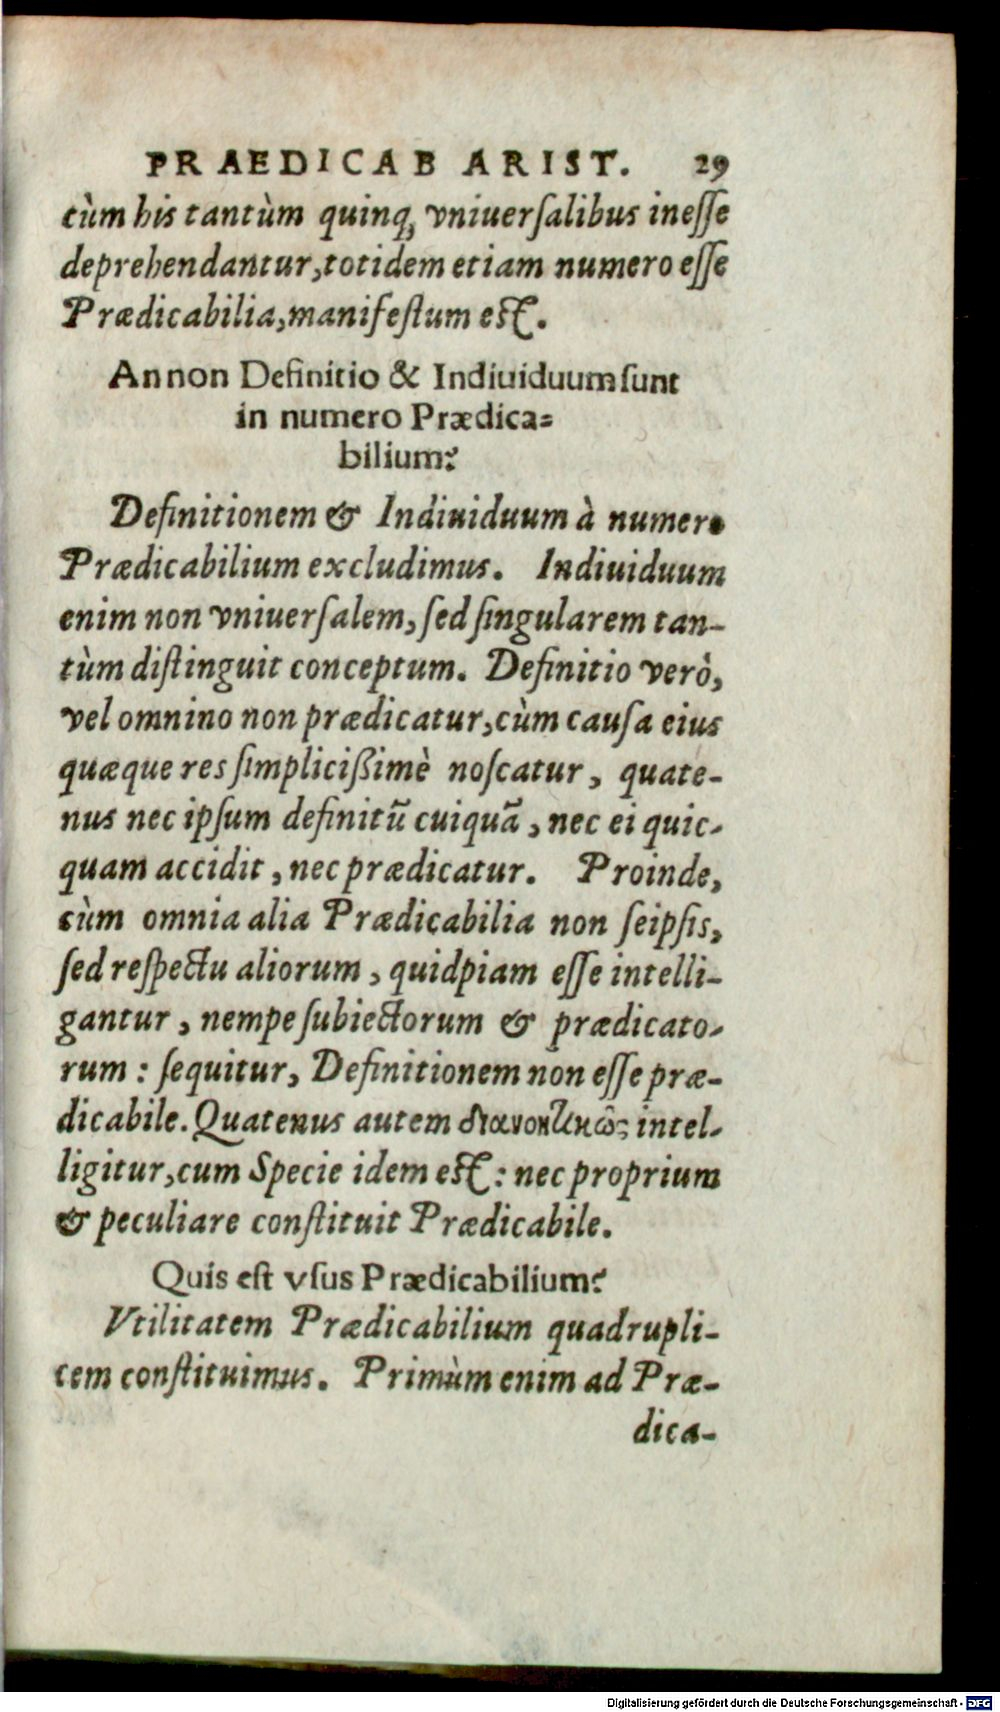 PRAEDICAB ARIST. 29
cùm his tantùm quinq, vniuerſalibus ineſſe
deprehendantur, totidem etiam numero eſſe
Prædicabilia, manifeſtum eſt.
An non Definitio & Indiuiduum ſunt
in numero Prædica-
bilium?
Definitionem & Indiuiduum à numero
Prædicabilium excludimus. Indiuiduum
enim non vniuerſalem, ſed ſingularem tan-
tùm diſtinguit conceptum. Definitio verò,
vel omnino non prædicatur, cùm cauſa eius
quæque res ſimpliciſſimè noſcatur, quate-
nus nec ipſum definitū cuiquã, nec ei quic-
quam accidit, nec prædicatur. Proinde,
cùm omnia alia Prædicabilia non ſeipſis,
ſed reſpectu aliorum, quidpiam eſſe intelli-
gantur, nempe ſubiectorum & prædicato-
rum: ſequitur, Definitionem non eſſe præ-
dicabile. Quatenus autem διανοητικῶς intel-
ligitur, cum Specie idem eſt: nec proprium
& peculiare conſtituit Prædicabile.
Quis est vſus Prædicabilium?
Vtilitatem Prædicabilium quadrupli-
cem conſtituimus. Primùm enim ad Præ-
dica-
Digitalisierung gefördert durch die Deutsche Forschungsgemeinschaft - DFG